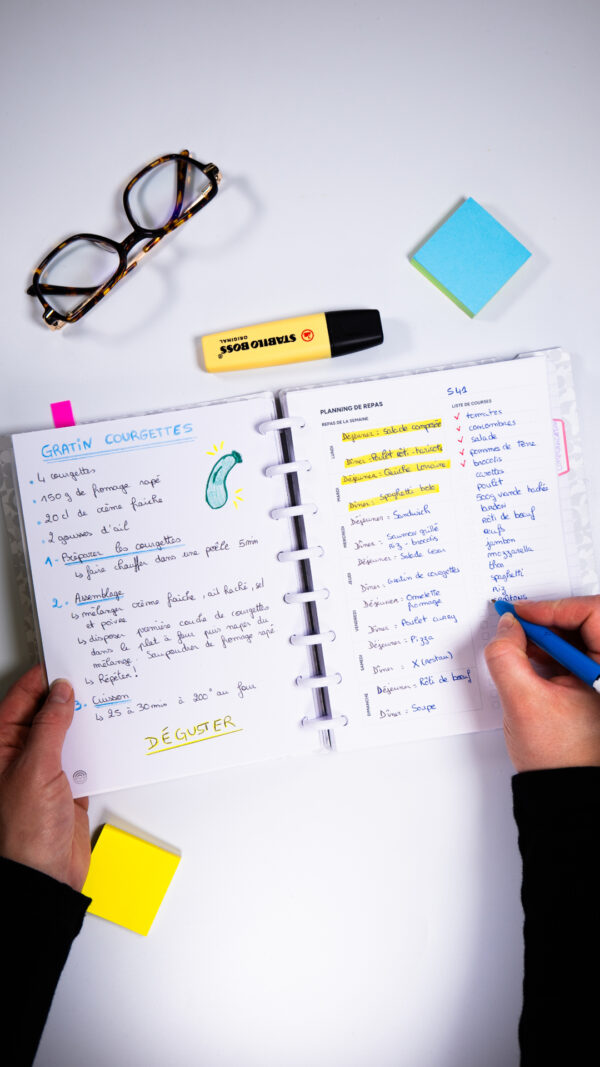 STABILO BOSS
ORIGINAL
GRATIN COURGETTES
4 courgettes
150 g de fromage rapé
20 cl de crème fraîche
2 gousses d'ail
1 - Préparer les courgettes
↳ faire chauffer dans une poêle 5mn
2. Assemblage
↳ mélanger crème fraîche, ail haché, sel
et poivre
↳ disposer première couche de courgettes
dans le plat à four puis napper du
mélange. Saupoudrer de fromage rapé
↳ Répéter!
3. Cuisson
↳ 25 à 30 min à 200° au four
DÉGUSTER
PLANNING DE REPAS
REPAS DE LA SEMAINE
LUNDI
Déjeuner : salade composée
Dîner : Poulet rôti - haricots
MARDI
Déjeuner : Quiche Lorraine
Dîner : spaghetti bolo
MERCREDI
Déjeuner : Sandwich
Dîner : Saumon grillé
riz - brocolis
JEUDI
Déjeuner : Salade César
Dîner : Gratin de courgettes
VENDREDI
Déjeuner : Omelette
fromage
Dîner : Poulet curry
SAMEDI
Déjeuner : Pizza
Dîner : X (restau)
DIMANCHE
Déjeuner : Rôti de bœuf
Dîner : Soupe
S41
LISTE DE COURSES
tomates
concombres
salade
pommes de terre
brocolis
carottes
poulet
500g viande hachée
lardon
rôti de bœuf
œufs
jambon
mozzarella
thon
spaghetti
riz